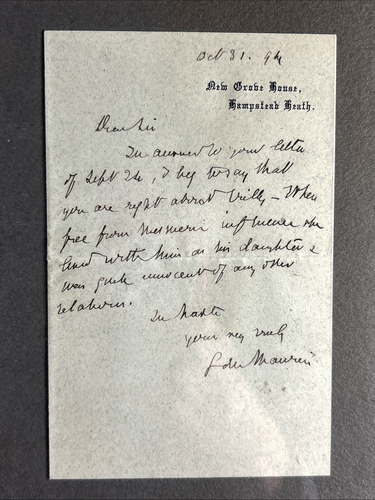 Oct 31. 94
New Grove House,
Hampstead Heath.
Dear Sir
In answer to your letter
of Sept 24, I beg to say that
you are right about Trilby — When
free from mesmeric influence she
lived with him as his daughter &
was quite innocent of any other
relation.
In haste
yours very truly
G du Maurier